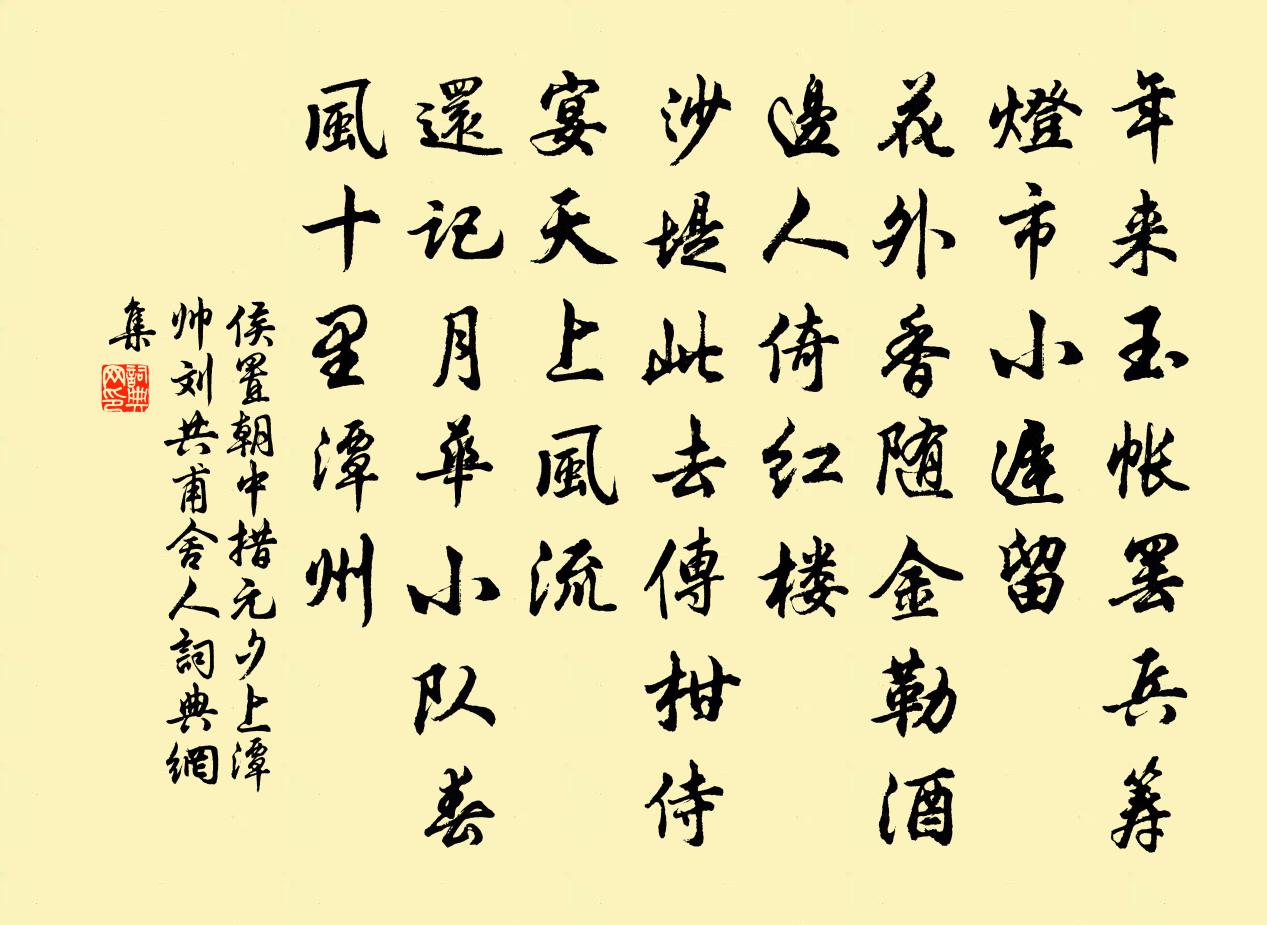 年来玉帐罢兵筹
燈市小遲留
花外香随金勒酒
邊人倚红楼
沙堤此去傳柑侍
宴天上風流
還记月華小队春
風十里潭州
侯置朝中措元夕上潭
帅刘共甫舍人詞典網
集
詞典網印